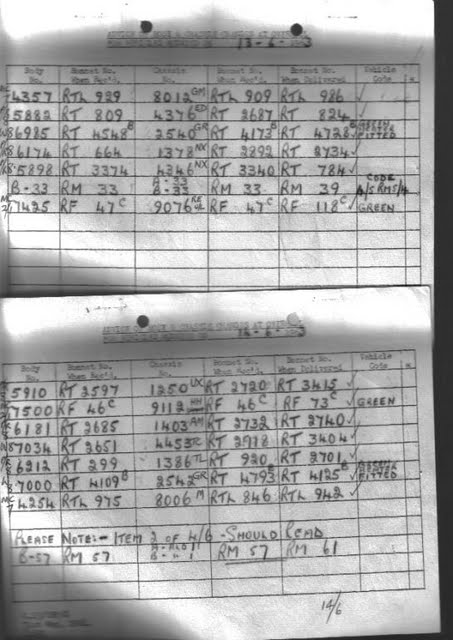 ADVICE OF BODY & CHASSIS CHANGES AT
13-6-
Body No. Bonnet No. When Rec'd. Chassis No. Bonnet No. When Rec'd. Bonnet No. When Delivered Vehicle Code
4357 RTL 929 8012 GM RTL 909 RTL 986 ✓
5882 RT 809 4376 ED RT 2687 RT 824 ✓
6985 RT 4548 B 2540 GR RT 4173 B RT 4728 B FITTED
6174 RT 664 1378 NX RT 2892 RT 2734 ✓
5898 RT 3374 4346 NX RT 3340 RT 784 ✓
B-33 RM 33 B-33 RM 33 RM 39 CODE A/5RM5/4
7425 RF 47 C 9076 RF 47 C RF 118 C ✓ GREEN
ADVICE OF BODY & CHASSIS CHANGES AT
14-6-
Body No. Bonnet No. When Rec'd. Chassis No. Bonnet No. When Rec'd. Bonnet No. When Delivered Vehicle Code
5910 RT 2597 1250 UX RT 2720 RT 3415 ✓
7500 RF 46 C 9112 RF 46 C RF 73 C ✓ GREEN
6181 RT 2685 1403 AM RT 2732 RT 2740 ✓
7034 RT 2651 4453 RT RT 3404 ✓
6212 RT 299 1386 TL RT 920 RT 2701 ✓
7000 RT 4109 B 2542 GR RT 4793 B RT 4125 B FITTED
4254 RTL 975 8006 M RTL 846 RTL 942 ✓
PLEASE NOTE:- ITEM 2 OF 4/6 - SHOULD READ
B-57 RM 57 RM 57 RM 61
14/6